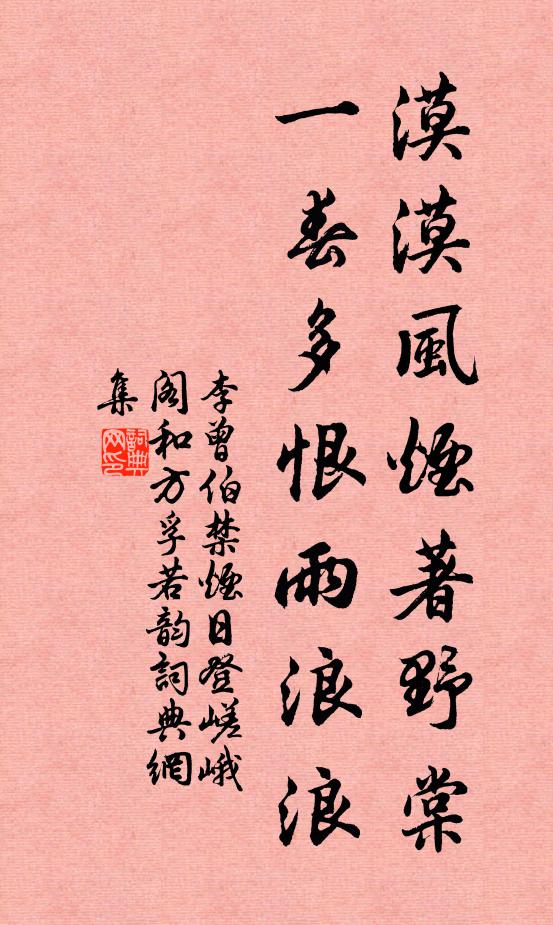 漠漠風煙著野棠
一春多恨雨浪浪
李曾伯禁煙日登嵯峨
阁和方孚若韵詞典網
集
詞典网印